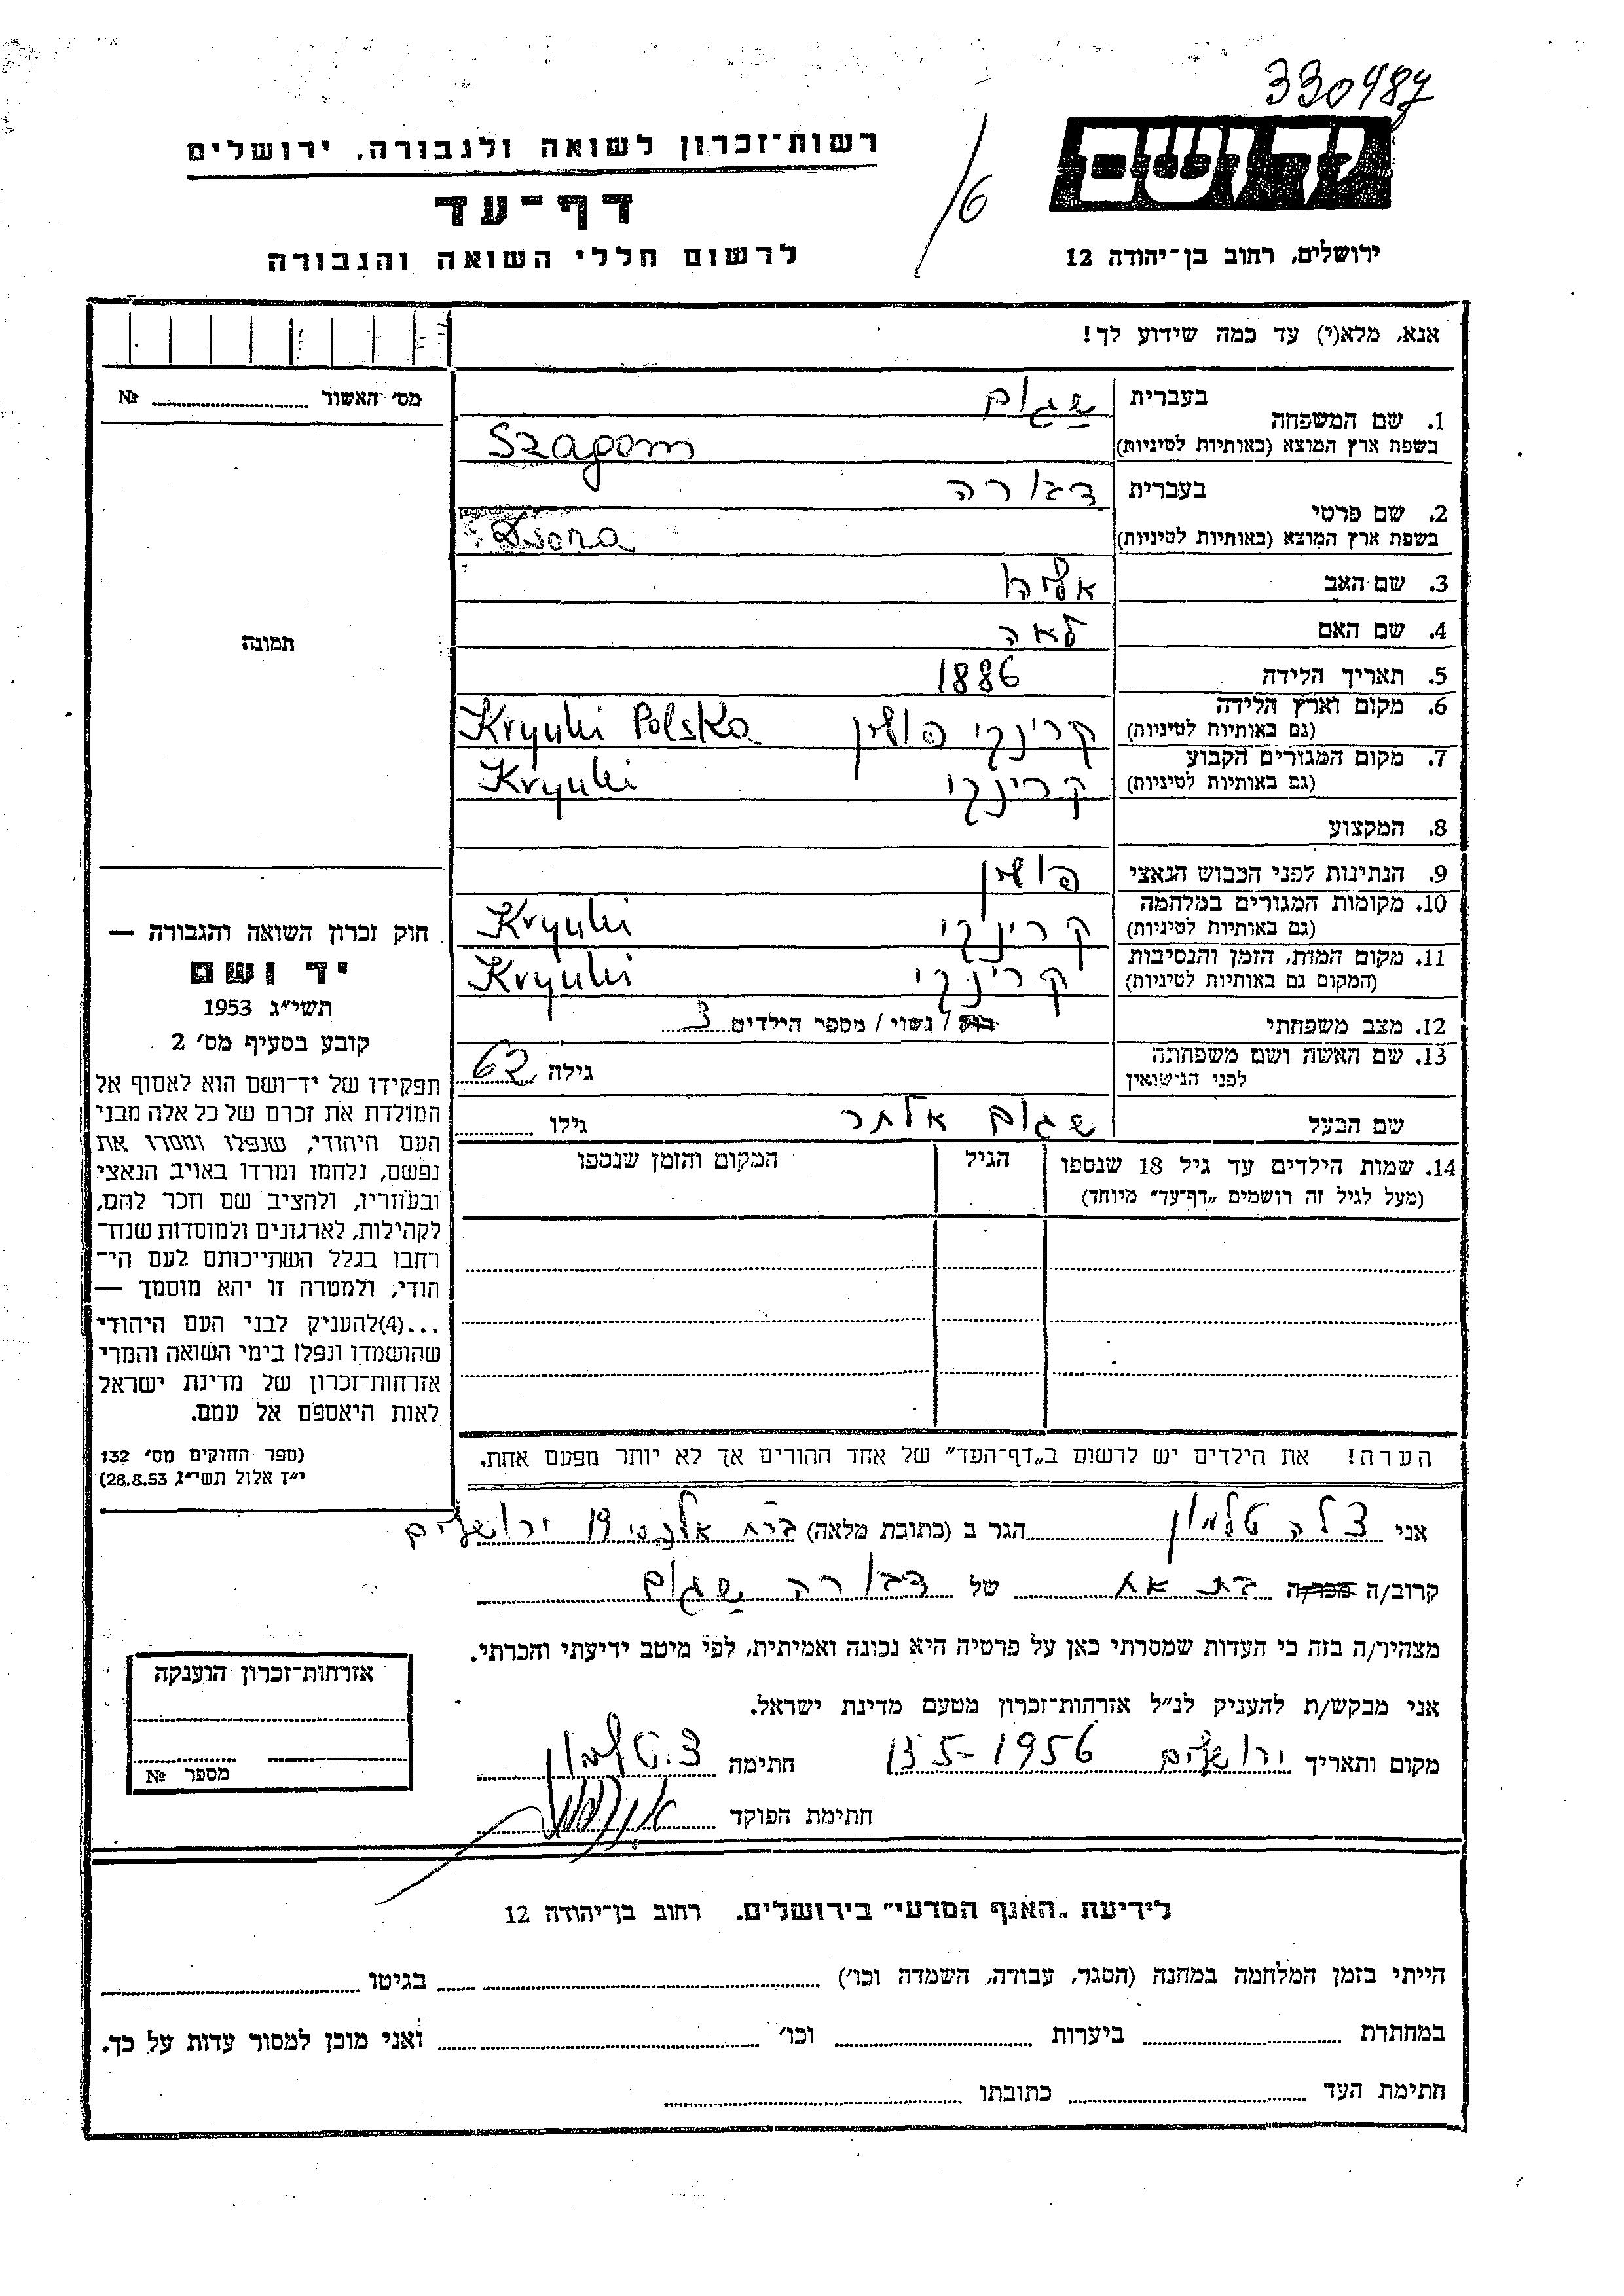 330487
יד ושם
/6
רשות־זכרון לשואה ולגבורה, ירושלים
דף־עד
לרשום חללי השואה והגבורה
ירושלים, רחוב בן־יהודה 12
אנא, מלא(י) עד כמה שידוע לך!
מס׳ האשור № 
1. שם המשפחה
בעברית שגום
בשפת ארץ המוצא (באותיות לטיניות) Szagom
2. שם פרטי
בעברית דבורה
בשפת ארץ המוצא (באותיות לטיניות) Dvora
3. שם האב אליהו
4. שם האם לאה
תמונה
5. תאריך הלידה 1886
6. מקום וארץ הלידה (גם באותיות לטיניות) קרינקי פולין Krynki Polska
7. מקום המגורים הקבוע (גם באותיות לטיניות) קרינקי Krynki
8. המקצוע
9. הנתינות לפני הכבוש הנאצי פולין
10. מקומות המגורים במלחמה (גם באותיות לטיניות) קרינקי Krynki
11. מקום המות, הזמן והנסיבות (המקום גם באותיות לטיניות) קרינקי Krynki
12. מצב משפחתי רווק / נשוי / מספר הילדים 3
13. שם האשה ושם משפחתה לפני הנישואין גילה 62
שם הבעל שגום אלתר גילו
14. שמות הילדים עד גיל 18 שנספו
(מעל לגיל זה רושמים „דף־עד״ מיוחד)
הגיל
המקום והזמן שנספו
הערה! את הילדים יש לרשום ב„דף־העד״ של אחד ההורים אך לא יותר מפעם אחת.
חוק זכרון השואה והגבורה —
יד ושם
תשי״ג 1953
קובע בסעיף מס׳ 2
תפקידו של יד־ושם הוא לאסוף אל
המולדת את זכרם של כל אלה מבני
העם היהודי, שנפלו ומסרו את
נפשם, נלחמו ומרדו באויב הנאצי
ובעוזריו, ולהציב שם וזכר להם,
לקהילות, לארגונים ולמוסדות שנח־
רחבו בגלל השתייכותם לעם הי־
הודי, ולמטרה זו יהא מוסמך —
...(4)להעניק לבני העם היהודי
שהושמדו ונפלו בימי השואה והמרי
אזרחות־זכרון של מדינת ישראל
לאות היאספם אל עמם.
(ספר החוקים מס׳ 132
י״ז אלול תשי״ג 28.8.53)
אני צלה טלמון הגר ב (כתובת מלאה) 19 ירושלים
קרוב/ה מכר/ה בת אח של דבורה שגום
מצהיר/ה בזה כי העדות שמסרתי כאן על פרטיה היא נכונה ואמיתית, לפי מיטב ידיעתי והכרתי.
אני מבקש/ת להעניק לנ״ל אזרחות־זכרון מטעם מדינת ישראל.
מקום ותאריך ירושלים 13 5-1956 חתימה צ. טלמון
חתימת הפוקד
אזרחות־זכרון הוענקה
מספר №
לידיעת „האגף המדעי״ בירושלים. רחוב בן־יהודה 12
הייתי בזמן המלחמה במחנה (הסגר, עבודה, השמדה וכו׳) בגיטו
במחתרת ביערות וכו׳ ואני מוכן למסור עדות על כך.
חתימת העד כתובתו